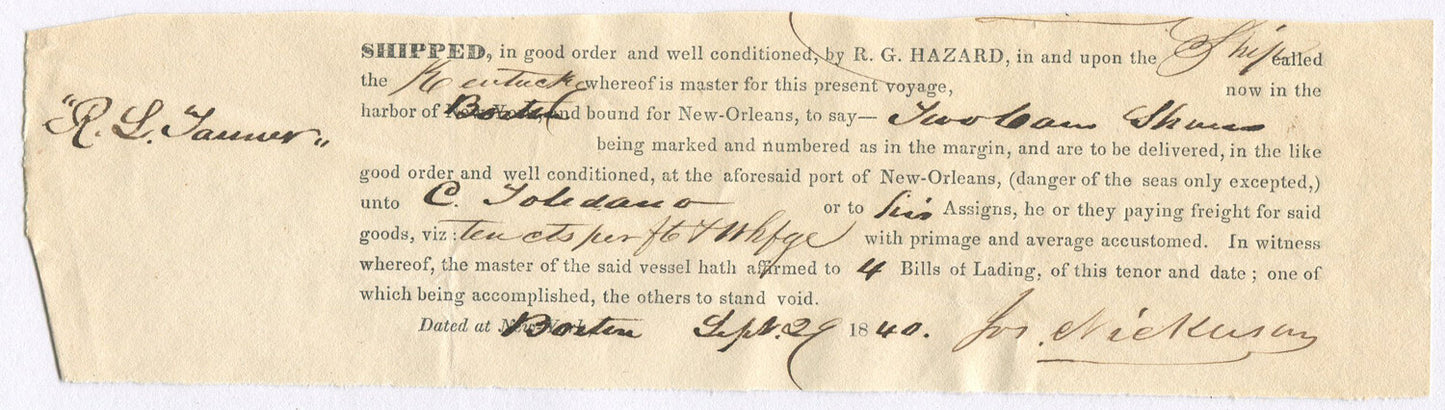 SHIPPED, in good order and well conditioned, by R. G. HAZARD, in and upon the Ship called
the Kentucky whereof is master for this present voyage, now in the
harbor of Boston and bound for New-Orleans, to say— Two
"R. L. Tanner"
being marked and numbered as in the margin, and are to be delivered, in the like
good order and well conditioned, at the aforesaid port of New-Orleans, (danger of the seas only excepted,)
unto C. Toledano or to his Assigns, he or they paying freight for said
goods, viz: ten cts per ft & Whfge with primage and average accustomed. In witness
whereof, the master of the said vessel hath affirmed to 4 Bills of Lading, of this tenor and date; one of
which being accomplished, the others to stand void.
Dated at Boston Sept. 29 1840. Jos. Nickerson